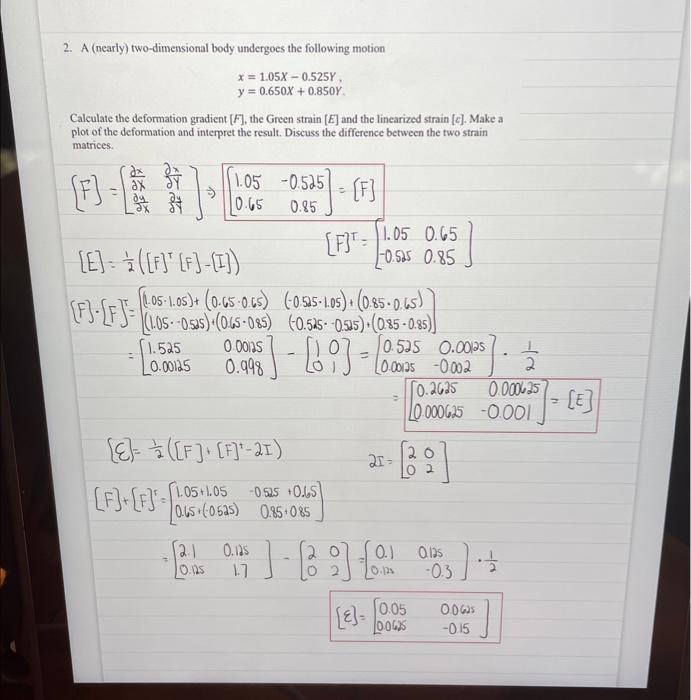 2. A (nearly) two-dimensional body undergoes the following motion
x = 1.05X − 0.525Y,
y = 0.650X + 0.850Y.
Calculate the deformation gradient [F], the Green strain [E] and the linearized strain [ε]. Make a
plot of the deformation and interpret the result. Discuss the difference between the two strain
matrices.
[F] = [∂x/∂X ∂x/∂Y; ∂y/∂X ∂y/∂Y] ⇒ [1.05 -0.525; 0.65 0.85] = [F]
[F]ᵀ = [1.05 0.65; -0.525 0.85]
[E] = ½([F]ᵀ[F]-[I])
[F]·[F]ᵀ = [(1.05·1.05)+(0.65·0.65) (-0.525·1.05)+(0.85·0.65); (1.05·-0.525)+(0.65·0.85) (-0.525·-0.525)+(0.85·0.85)]
= [1.525 0.00125; 0.00125 0.998] - [1 0; 0 1] = [0.525 0.00125; 0.00125 -0.002] · ½
= [0.2625 0.000625; 0.000625 -0.001] = [E]
[ε] = ½([F]+[F]ᵀ-2I) 2I = [2 0; 0 2]
[F]+[F]ᵀ = [1.05+1.05 -0.525+0.65; 0.65+(-0.525) 0.85+0.85]
= [2.1 0.125; 0.125 1.7] - [2 0; 0 2] = [0.1 0.125; 0.125 -0.3] · ½
[ε] = [0.05 0.0625; 0.0625 -0.15]